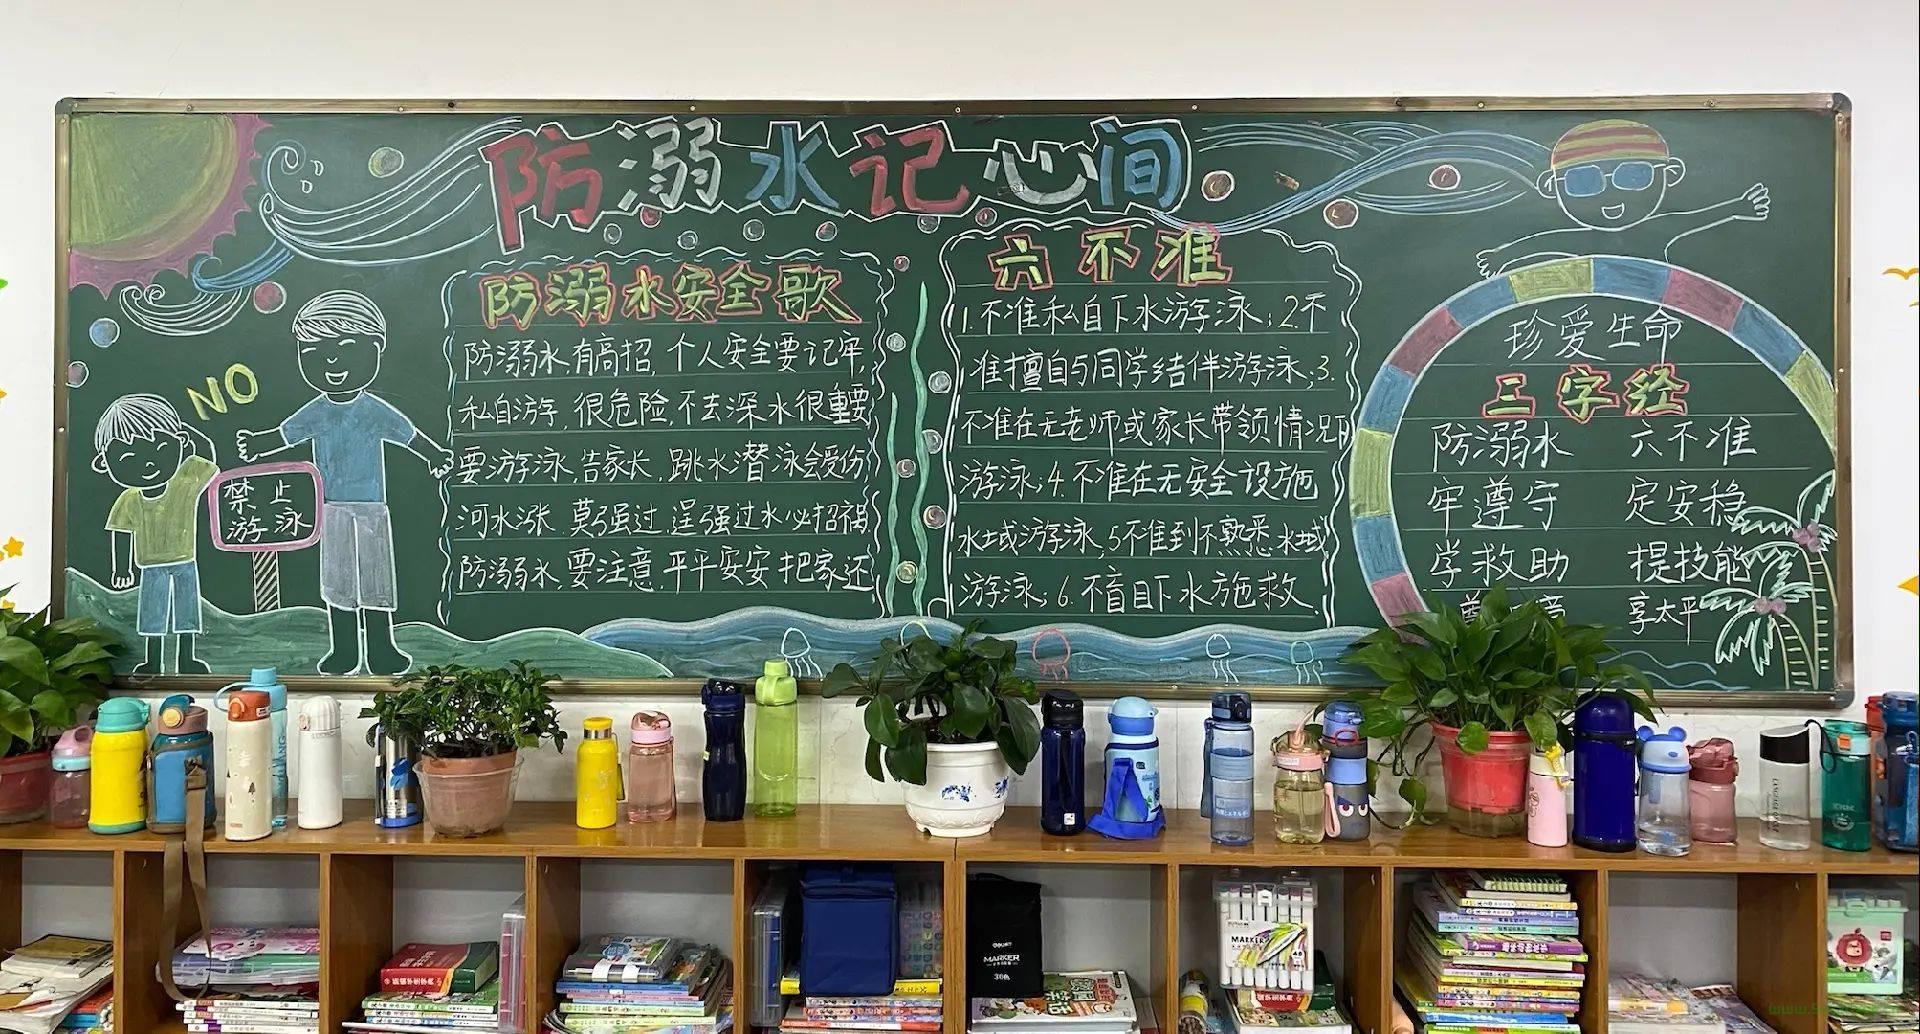 防溺水记心间
NO
禁止
游泳
防溺水安全歌
防溺水,有高招,个人安全要记牢,
私自游,很危险,不去深水很重要
要游泳,告家长,跳水潜泳会受伤
河水涨,莫强过,逞强过水必招祸
防溺水,要注意,平平安安把家还
六不准
1.不准私自下水游泳;2.不
准擅自与同学结伴游泳;3.
不准在无老师或家长带领情况下
游泳;4.不准在无安全设施
水域游泳,5不准到不熟悉水域
游泳;6.不盲目下水施救.
珍爱生命
三字经
防溺水 六不准
牢遵守 定安稳
学救助 提技能
享太平
MARKER
MARKER